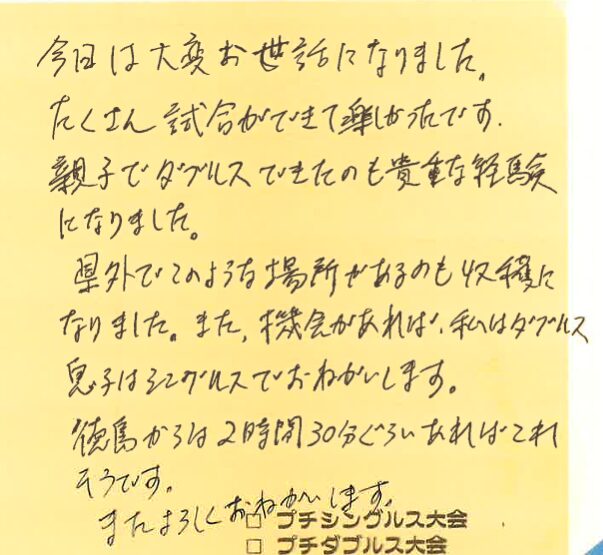 今日は大変お世話になりました。
たくさん試合ができて楽しかったです.
親子でダブルスできたのも貴重な経験
になりました。
県外でこのような場所があるのも収穫に
なりました。また、機会があれば、私はダブルス
息子はシングルスでおねがいします。
徳島からは2時間30分ぐらいあればこれ
そうです。
またよろしくおねがいします。
□ プチシングルス大会
□ プチダブルス大会